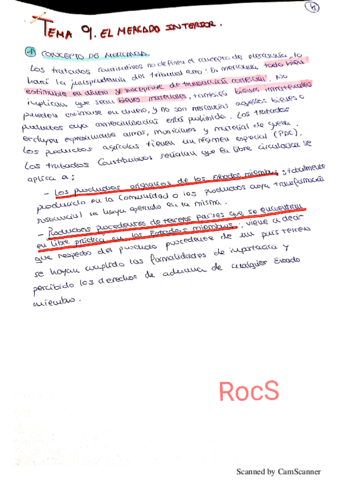 4
TEMA 9. EL MERCADO INTERIOR.
1 CONCEPTO DE MERCANCÍA
Los tratados constitutivos no definen el concepto de mercancía, lo
hará la jurisprudencia del Tribunal. Es mercancía, todo bien
estimable en dinero y susceptible de transacción comercial. No
implican que sean bienes materiales, también bienes inmateriales
pueden estimarse en dinero, y no son mercancías aquellos bienes o
productos cuya comercialización está prohibida. Los tratados
excluyen expresamente armas, municiones y material de guerra.
Los productos agrícolas tienen un régimen especial (PAC).
Los tratados Constitutivos señalan que la libre circulación se
aplica a:
- Los productos originarios de los Estados miembros, totalmente
producidos en la Comunidad o los productos cuya transformación
substancial se haya operado en la misma.
- Productos procedentes de terceros países que se encuentren
en libre práctica en los Estados miembros, viene a decir
que respecto del producto procedente de un país tercero
se hayan cumplido las formalidades de importación y
percibido los derechos de aduana de cualquier Estado
miembro.
RocS
Scanned by CamScanner